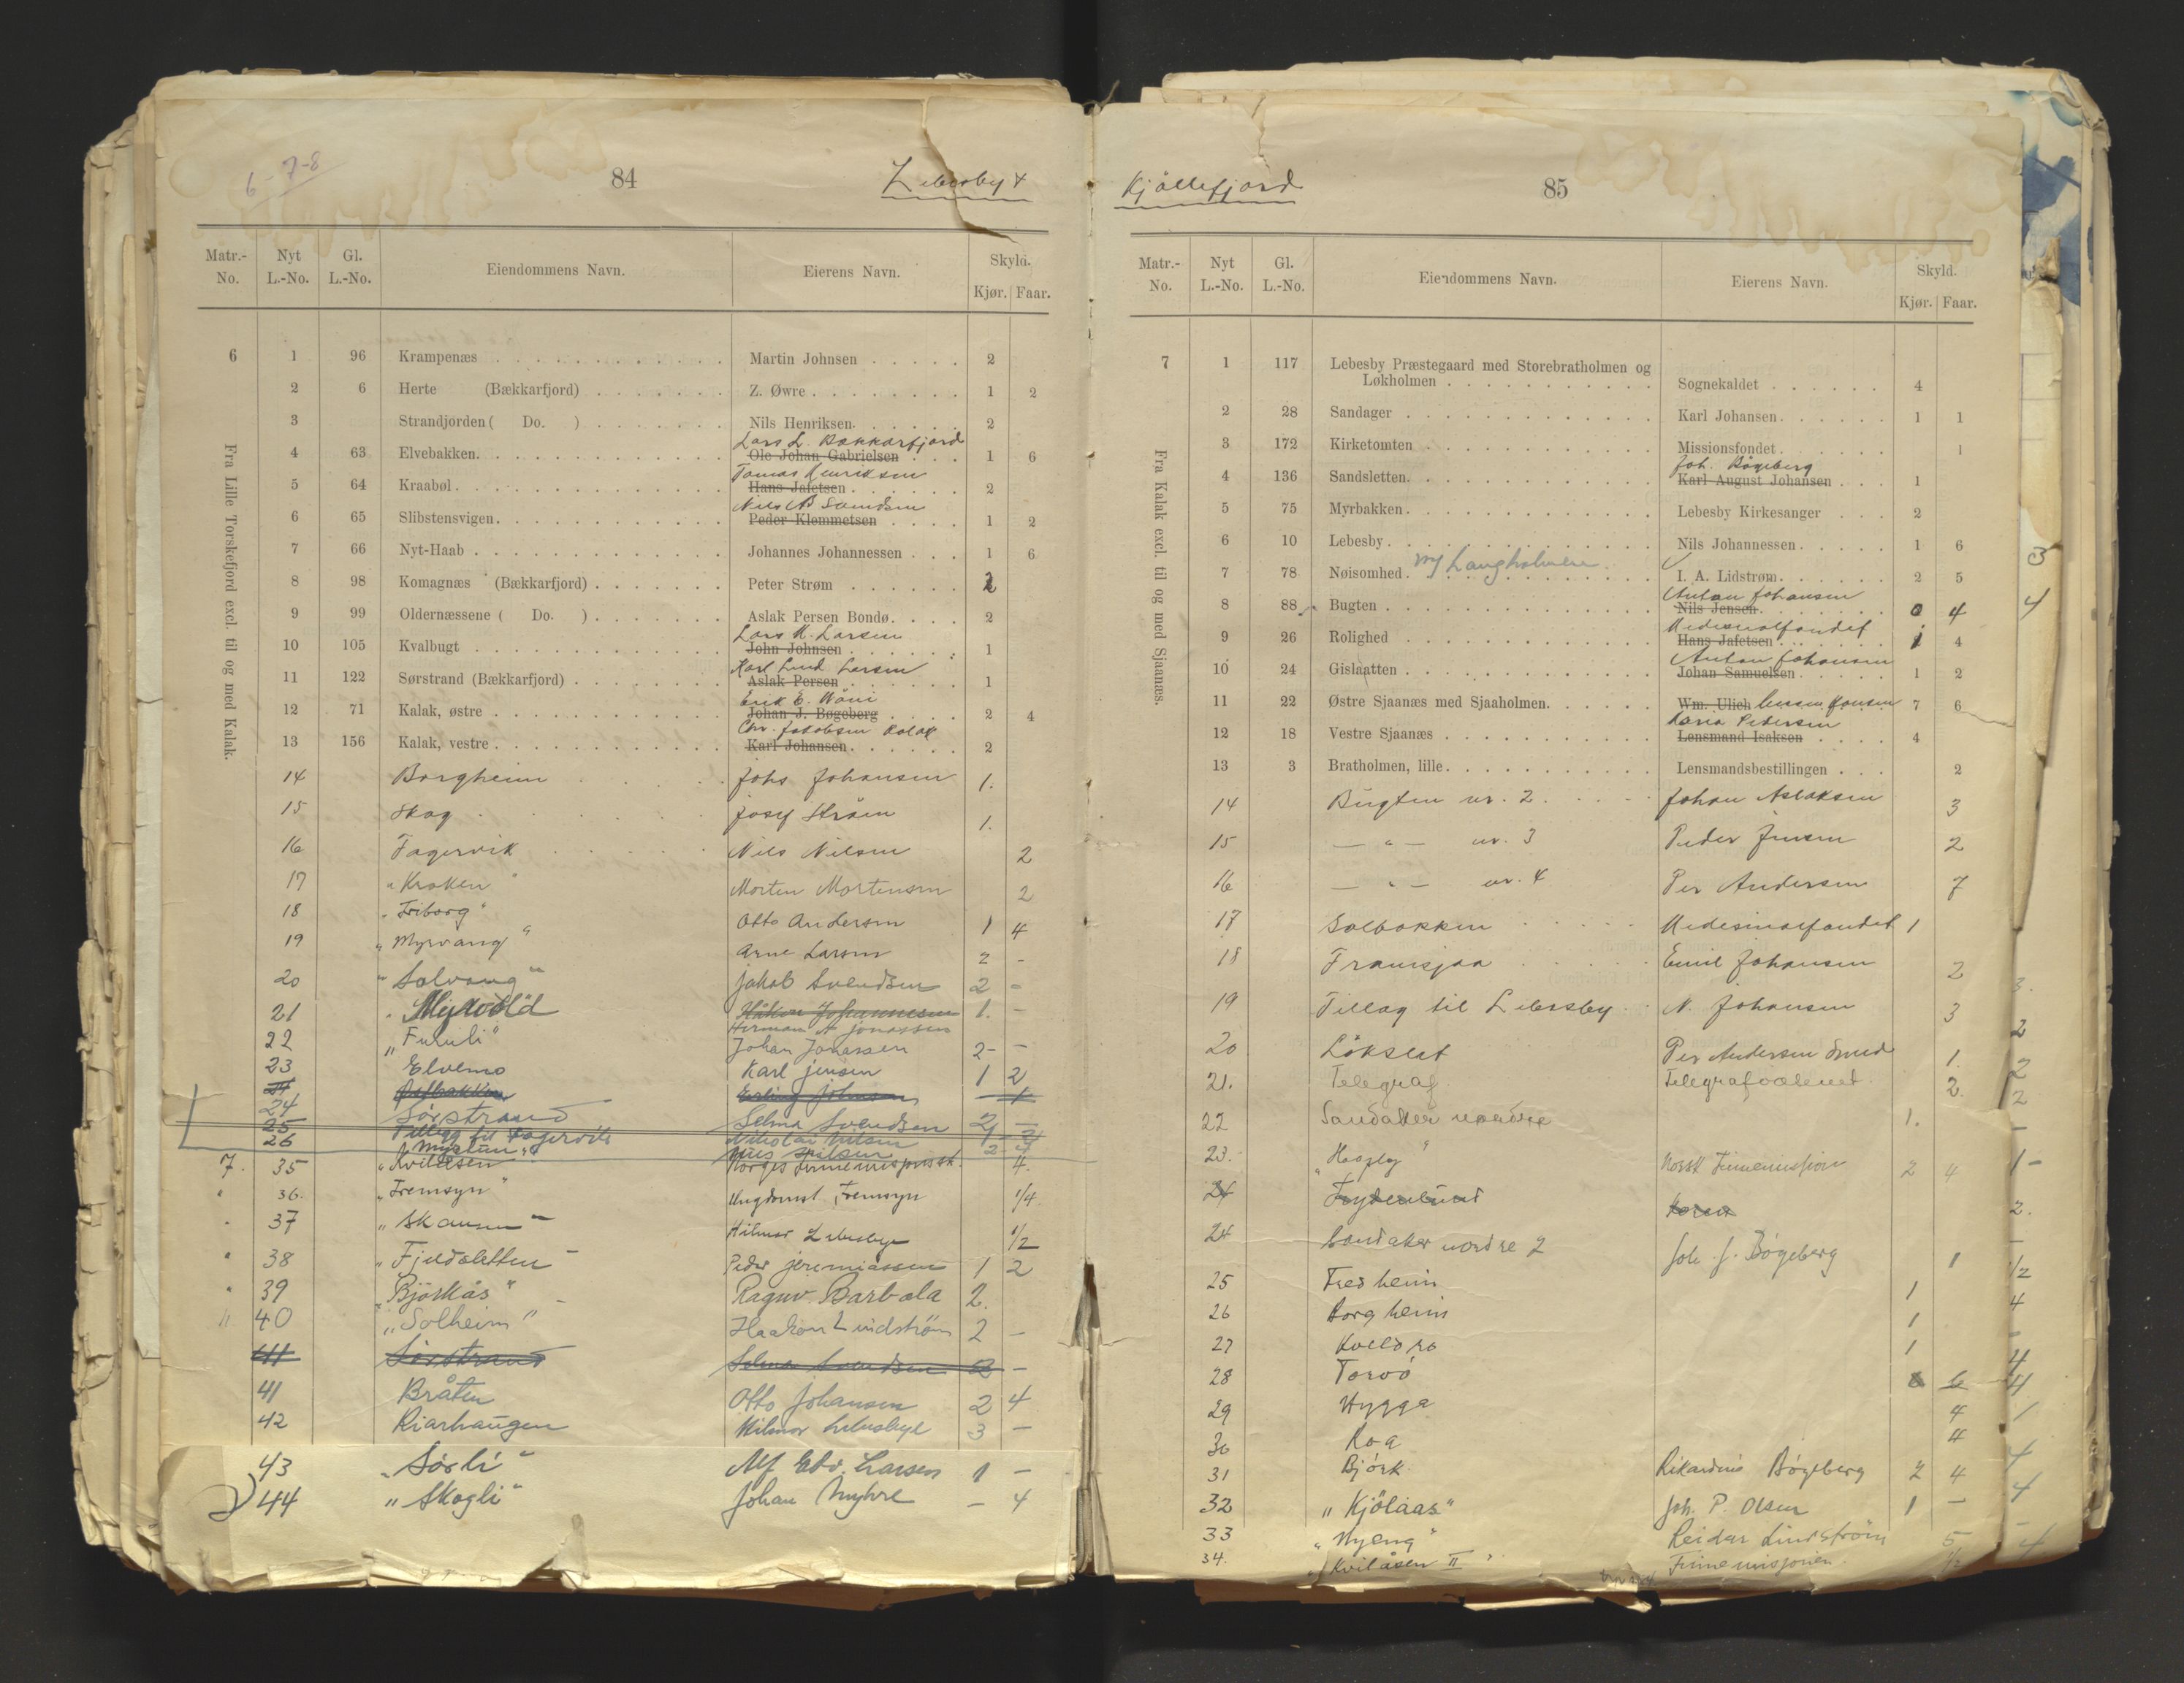 6-7-8
84
Lebesby &
Matr.-No. Nyt L.-No. Gl. L.-No. Eiendommens Navn. Eierens Navn. Skyld. Kjør. Faar.
Fra Lille Torskefjord excl. til og med Kalak.
6 1 96 Krampenæs Martin Johnsen 2
2 6 Herte (Bækkarfjord) Z. Øwre 1 2
3 Strandjorden ( Do. ) Nils Henriksen. 2
Lars L. Bækkarfjord
4 63 Elvebakken. Ole Johan Gabrielsen 1 6
Tomas Henriksen
5 64 Kraabøl. Hans Jafetsen 2
Nils
6 65 Slibstensvigen. Peder Klemmetsen 1 2
7 66 Nyt-Haab Johannes Johannessen 1 6
8 98 Komagnæs (Bækkarfjord) Peter Strøm
9 99 Oldernæssene ( Do. ) Aslak Persen Bondø. 2
Lars K. Larsen
10 105 Kvalbugt John Johnsen 1
Karl Lund Larsen
11 122 Sørstrand (Bækkarfjord) Aslak Persen 1
Erik E.
12 71 Kalak, østre Johan J. Bøgeberg 2 4
Chr. Jakobsen Kalak
13 156 Kalak, vestre Karl Johansen. 2
14 Borgheim Johs Johansen 1.
15 Skog Josef Strøm 1.
16 Fagervik Nils Nilsen 2
17 "Kroken" Morten Mortensen 2
18 "Friborg" Otto Andersen 1 4
19 "Myrvang" Arne Larsen 2 -
20 "Solvang" Jakob Svendsen 2 -
21 "Myrvold Håkon Johannesen 1. -
Herman N Jonassen
22 "Furuli" Johan Jonassen 2 - -
23 Elvemo Karl Jensen 1 2
24 Erling Johnsen 1
24 Sørstrand Selma Svendsen 2 -
25 Tillegg til Fagervik Nikolai Nilsen
26 Myrtun Nils Nilsen 2
7. 35 "Kvilåsen Norges Finnemisjonssk. 4.
" 36. "Fremsyn" Ungdomsl. Fremsyn 1/4.
" 37 "Skansen" Hilmar Lebesbye 1/2
" 38 "Fjeldsletten" Peder Jeremiassen 1 2
" 39 "Bjørkås" Ragnv. Barbala 2.
" 40 "Solheim" Haakon Lindstrøm 2 -
41 Sørstrand Selma Svendsen 2 -
41 Bråten Otto Johansen 2 4
42 Riarhaugen Hilmar Lebesbye 3 -
43 "Sørli" Alf Edv. Larsen 1 -
44 "Skogli" Johan Myhre - 4
Kjøllefjord
85
Matr.-No. Nyt L.-No. Gl. L.-No. Eiendommens Navn. Eierens Navn. Skyld. Kjør. Faar.
Fra Kalak excl. til og med Sjaanæs.
7 1 117 Lebesby Præstegaard med Storebratholmen og
Løkholmen Sognekaldet 4
2 28 Sandager Karl Johansen. 1 1
3 172 Kirketomten Missionsfondet. 1
Joh. Bøgeberg
4 136 Sandsletten. Karl August Johansen 1
5 75 Myrbakken. Lebesby Kirkesanger 2
6 10 Lebesby. Nils Johannessen. 1 6
7 78 Nøisomhed. m/ Langholmen I. A. Lidstrøm. 2 5
Anton Johansen
8 88 Bugten Nils Jensen. 0 4
Medesinalfondet
9 26 Rolighed Hans Jafetsen 1 4
Anton Johansen
10 24 Gislaatten Johan Samuelsen 1 2
11 22 Østre Sjaanæs med Sjaaholmen. Wm. Ulich Jensen 7 6
Petersen
12 18 Vestre Sjaanæs Lensmand Isaksen 4
13 3 Bratholmen, lille. Lensmandsbestillingen 2
14 Bugten nr. 2. Johan Aslaksen 3
15 — " — nr. 3 Peder Jensen 2
16 — " — nr. 4 Per Andersen 7
17 Solbakken Medesinalfondet 1
18 Framsjaa Emil Johansen 2
19 Tillæg til Lebesby N. Johansen 3
20 Løkslet Per Andersen Smed 1.
21. Telegraf Telegrafvæsenet 2.
22 Sandaker nordre 1.
23. "Haapley" Norsk Finnemission 2 4
24 Frydenlund
24 Sandaker nordre 2 Joh. J. Bøgeberg 1
25 Fredheim 1
26 Borgheim 1
27 Kveldro 1
28 Torvø 6
29 Hygga 4
30 Roa 4
31 Bjørk Rikardinus Bøgeberg 2 4
32 "Kjølaas" Joh. P. Olsen 1 -
33 "Nyeng" Reidar Lindstrøm 5
34. "Kvilåsen II" Finnemisjonen 1/2